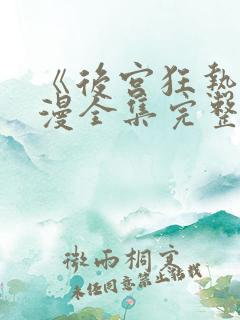 《後宮狂熱
漫全集完整
微雨桐室
未经同意禁止转载